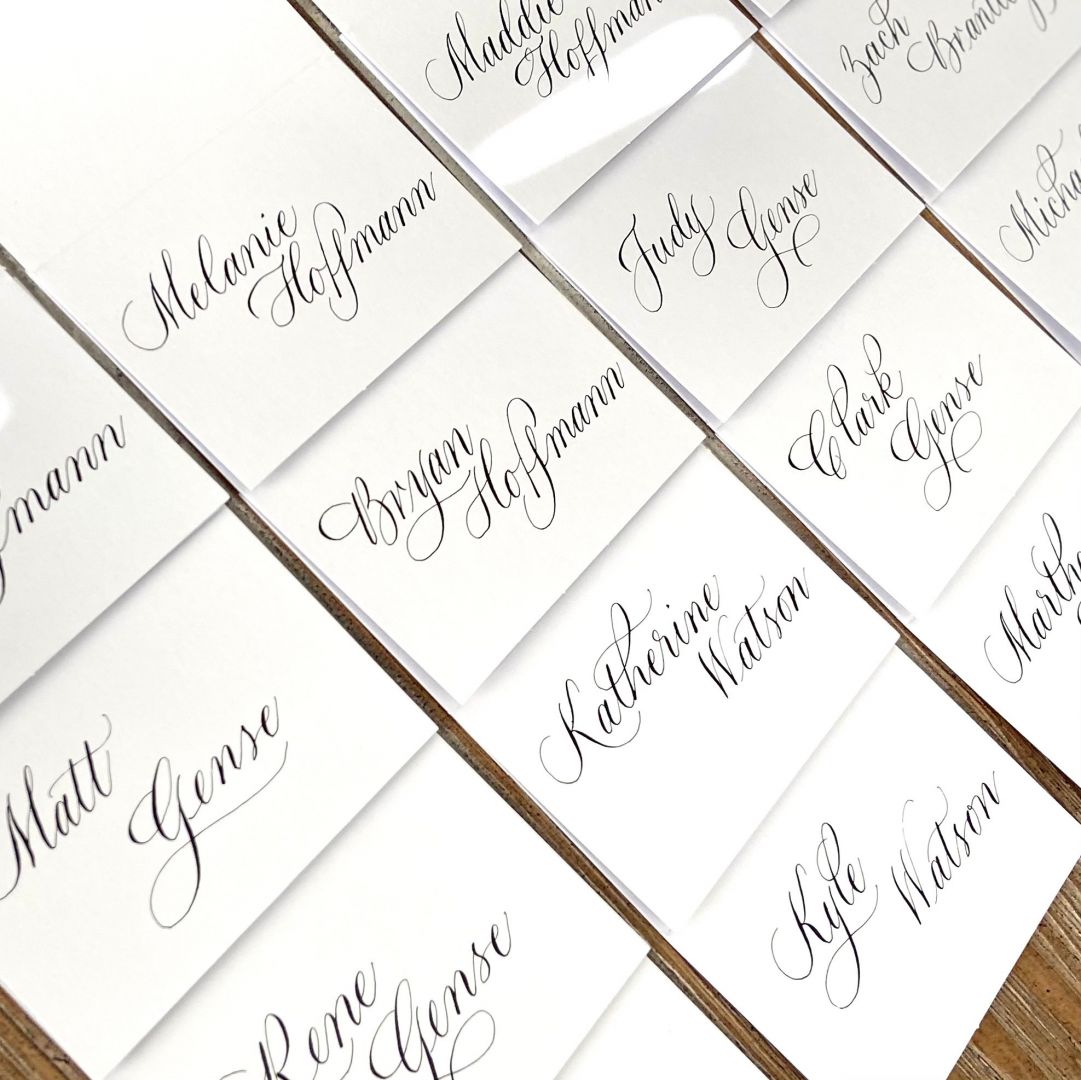 Maddie
Hoffmann
Zach
Brantl
Melanie
Hoffmann
Judy Gense
Micha
fmann
Bryan
Hoffmann
Clark
Gense
Matt Gense
Katherine
Watson
Martha
Rene
Gense
Kyle Watson